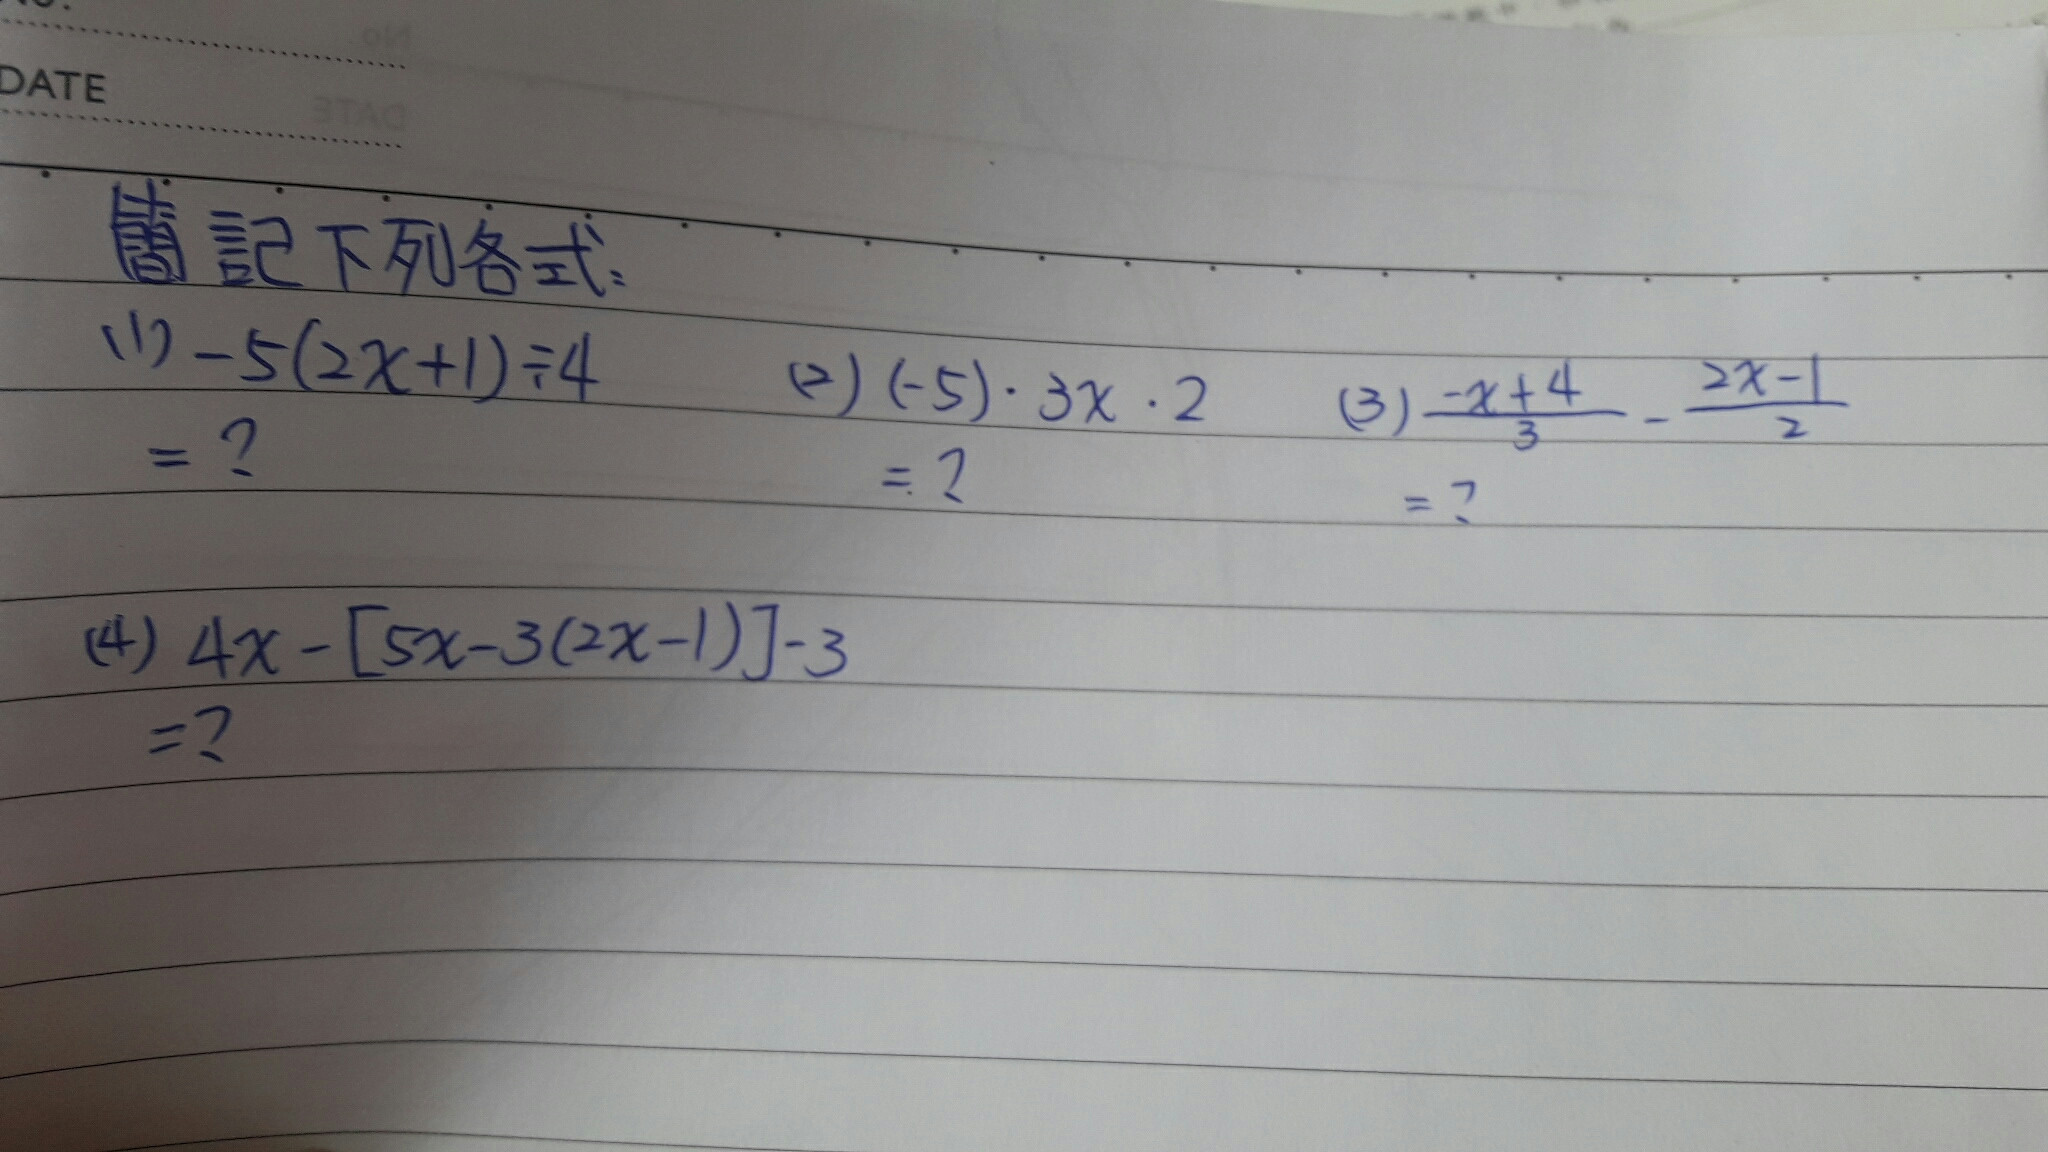 DATE
簡記下列各式:
(1) -5(2x+1)÷4 (2) (-5)·3x·2 (3) \frac{-x+4}{3} - \frac{2x-1}{2}
=? =? =?
(4) 4x-[5x-3(2x-1)]-3
=?